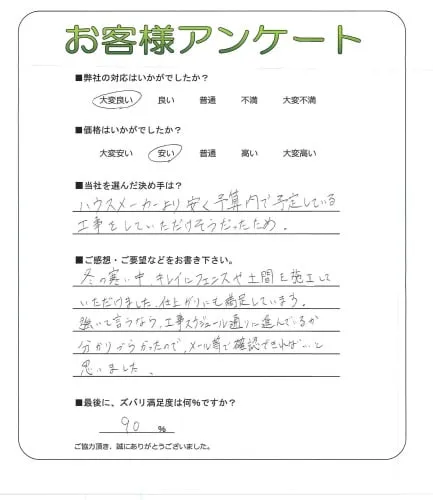 お客様アンケート
■弊社の対応はいかがでしたか?
大変良い 良い 普通 不満 大変不満
■価格はいかがでしたか?
大変安い 安い 普通 高い 大変高い
■当社を選んだ決め手は?
ハウスメーカーより安く予算内で予定している
工事をしていただけそうだったため。
■ご感想・ご要望などをお書き下さい。
冬の寒い中、キレイにフェンスや土間を施工して
いただけました。仕上がりにも満足しています。
強いて言うなら、工事スケジュール通りに進んでいるか
分かりづらかったので、メール等で確認できればいいと
思いました。
■最後に、ズバリ満足度は何%ですか?
90 %
ご協力頂き、誠にありがとうございました。